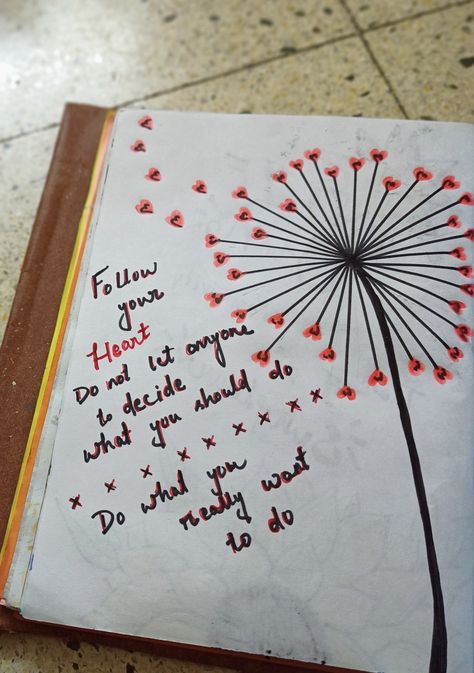 Follow
your
Heart
Do not let anyone
to decide
what you should do
x x x x x x x x x
Do what you
really want
to do